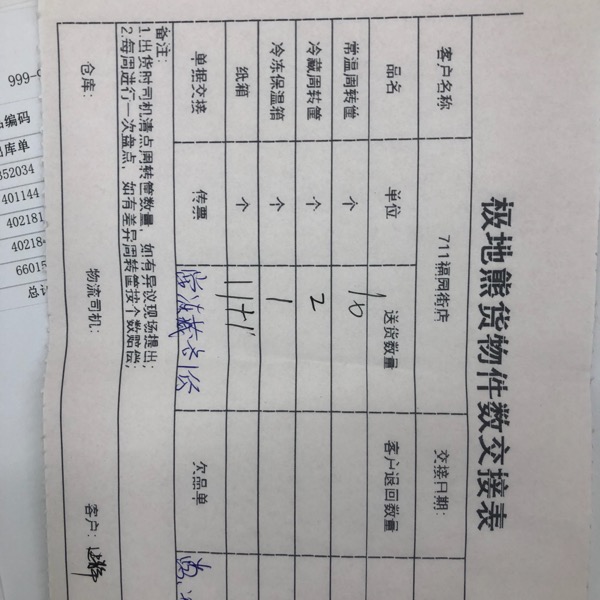 极地熊货物件数交接表
客户名称 711福园街店 交接日期:
品名 单位 送货数量 客户退回数量
常温周转筐 个 10
冷藏周转筐 个 2
冷冻保温箱 个 1
纸箱 个 11+1
单据交接 传票 欠品单
备注:
1.出货时司机清点周转筐数量,如有异议现场提出;
2.每周进行一次盘点,如有差异周转筐按个数赔偿;
仓库: 物流司机: 客户:
999-9
编码
库单
352034
401144
402181
40218
66015
总计